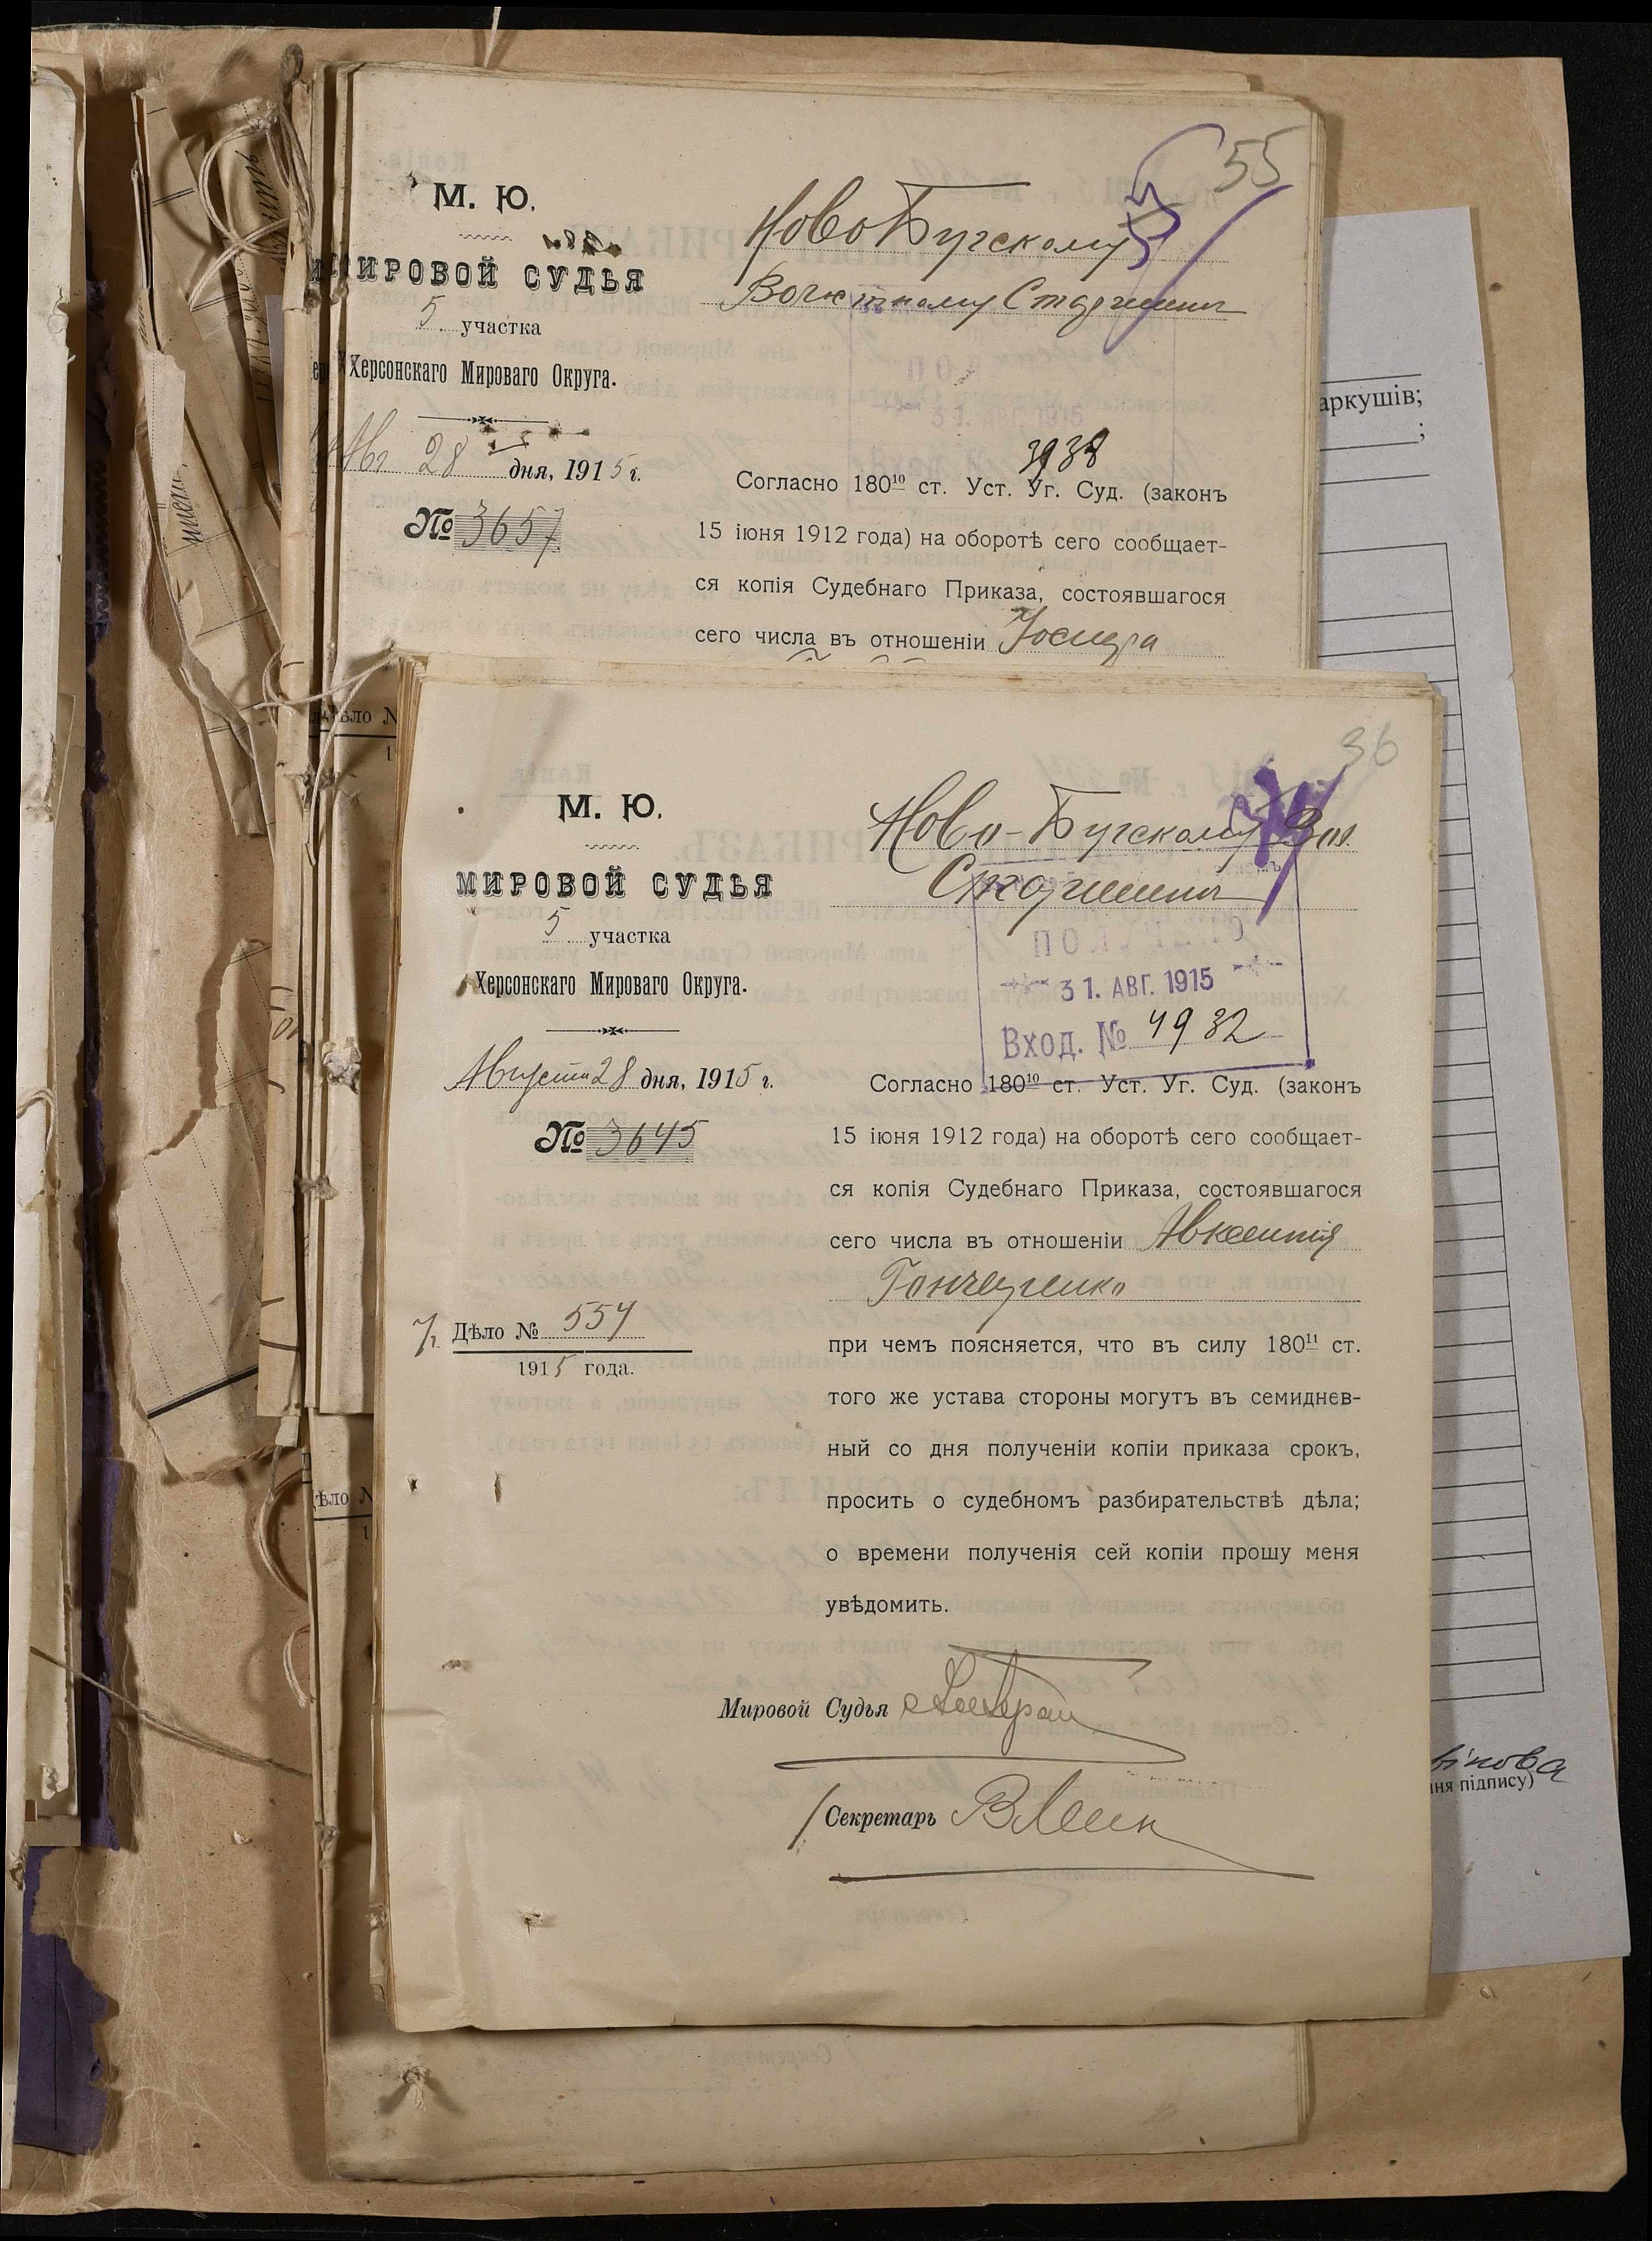 55
М. Ю.
МИРОВОЙ СУДЬЯ
5 участка
Херсонскаго Мироваго Округа.
Авг 28 дня, 1915 г.
№ 3657
НовоБугскому
Волостному Старшинѣ
31. АВГ. 1915
3938
Согласно 180¹⁰ ст. Уст. Уг. Суд. (законъ
15 іюня 1912 года) на оборотѣ сего сообщает-
ся копія Судебнаго Приказа, состоявшагося
сего числа въ отношеніи Іосифа
аркушів;
;
Дѣло №
Дѣло №
36
М. Ю.
МИРОВОЙ СУДЬЯ
5 участка
Херсонскаго Мироваго Округа.
Августа 28 дня, 1915 г.
№ 3645
Ново-Бугскому Вол.
Старшинѣ
31. АВГ. 1915
Вход. № 4932
Согласно 180¹⁰ ст. Уст. Уг. Суд. (законъ
15 іюня 1912 года) на оборотѣ сего сообщает-
ся копія Судебнаго Приказа, состоявшагося
сего числа въ отношеніи Авксентія
Гончаренко
Дѣло № 554
1915 года.
при чемъ поясняется, что въ силу 180¹¹ ст.
того же устава стороны могутъ въ семиднев-
ный со дня полученіи копіи приказа срокъ,
просить о судебномъ разбирательствѣ дѣла;
о времени полученія сей копіи прошу меня
увѣдомить.
Мировой Судья
Секретарь
вікова
ня підпису)